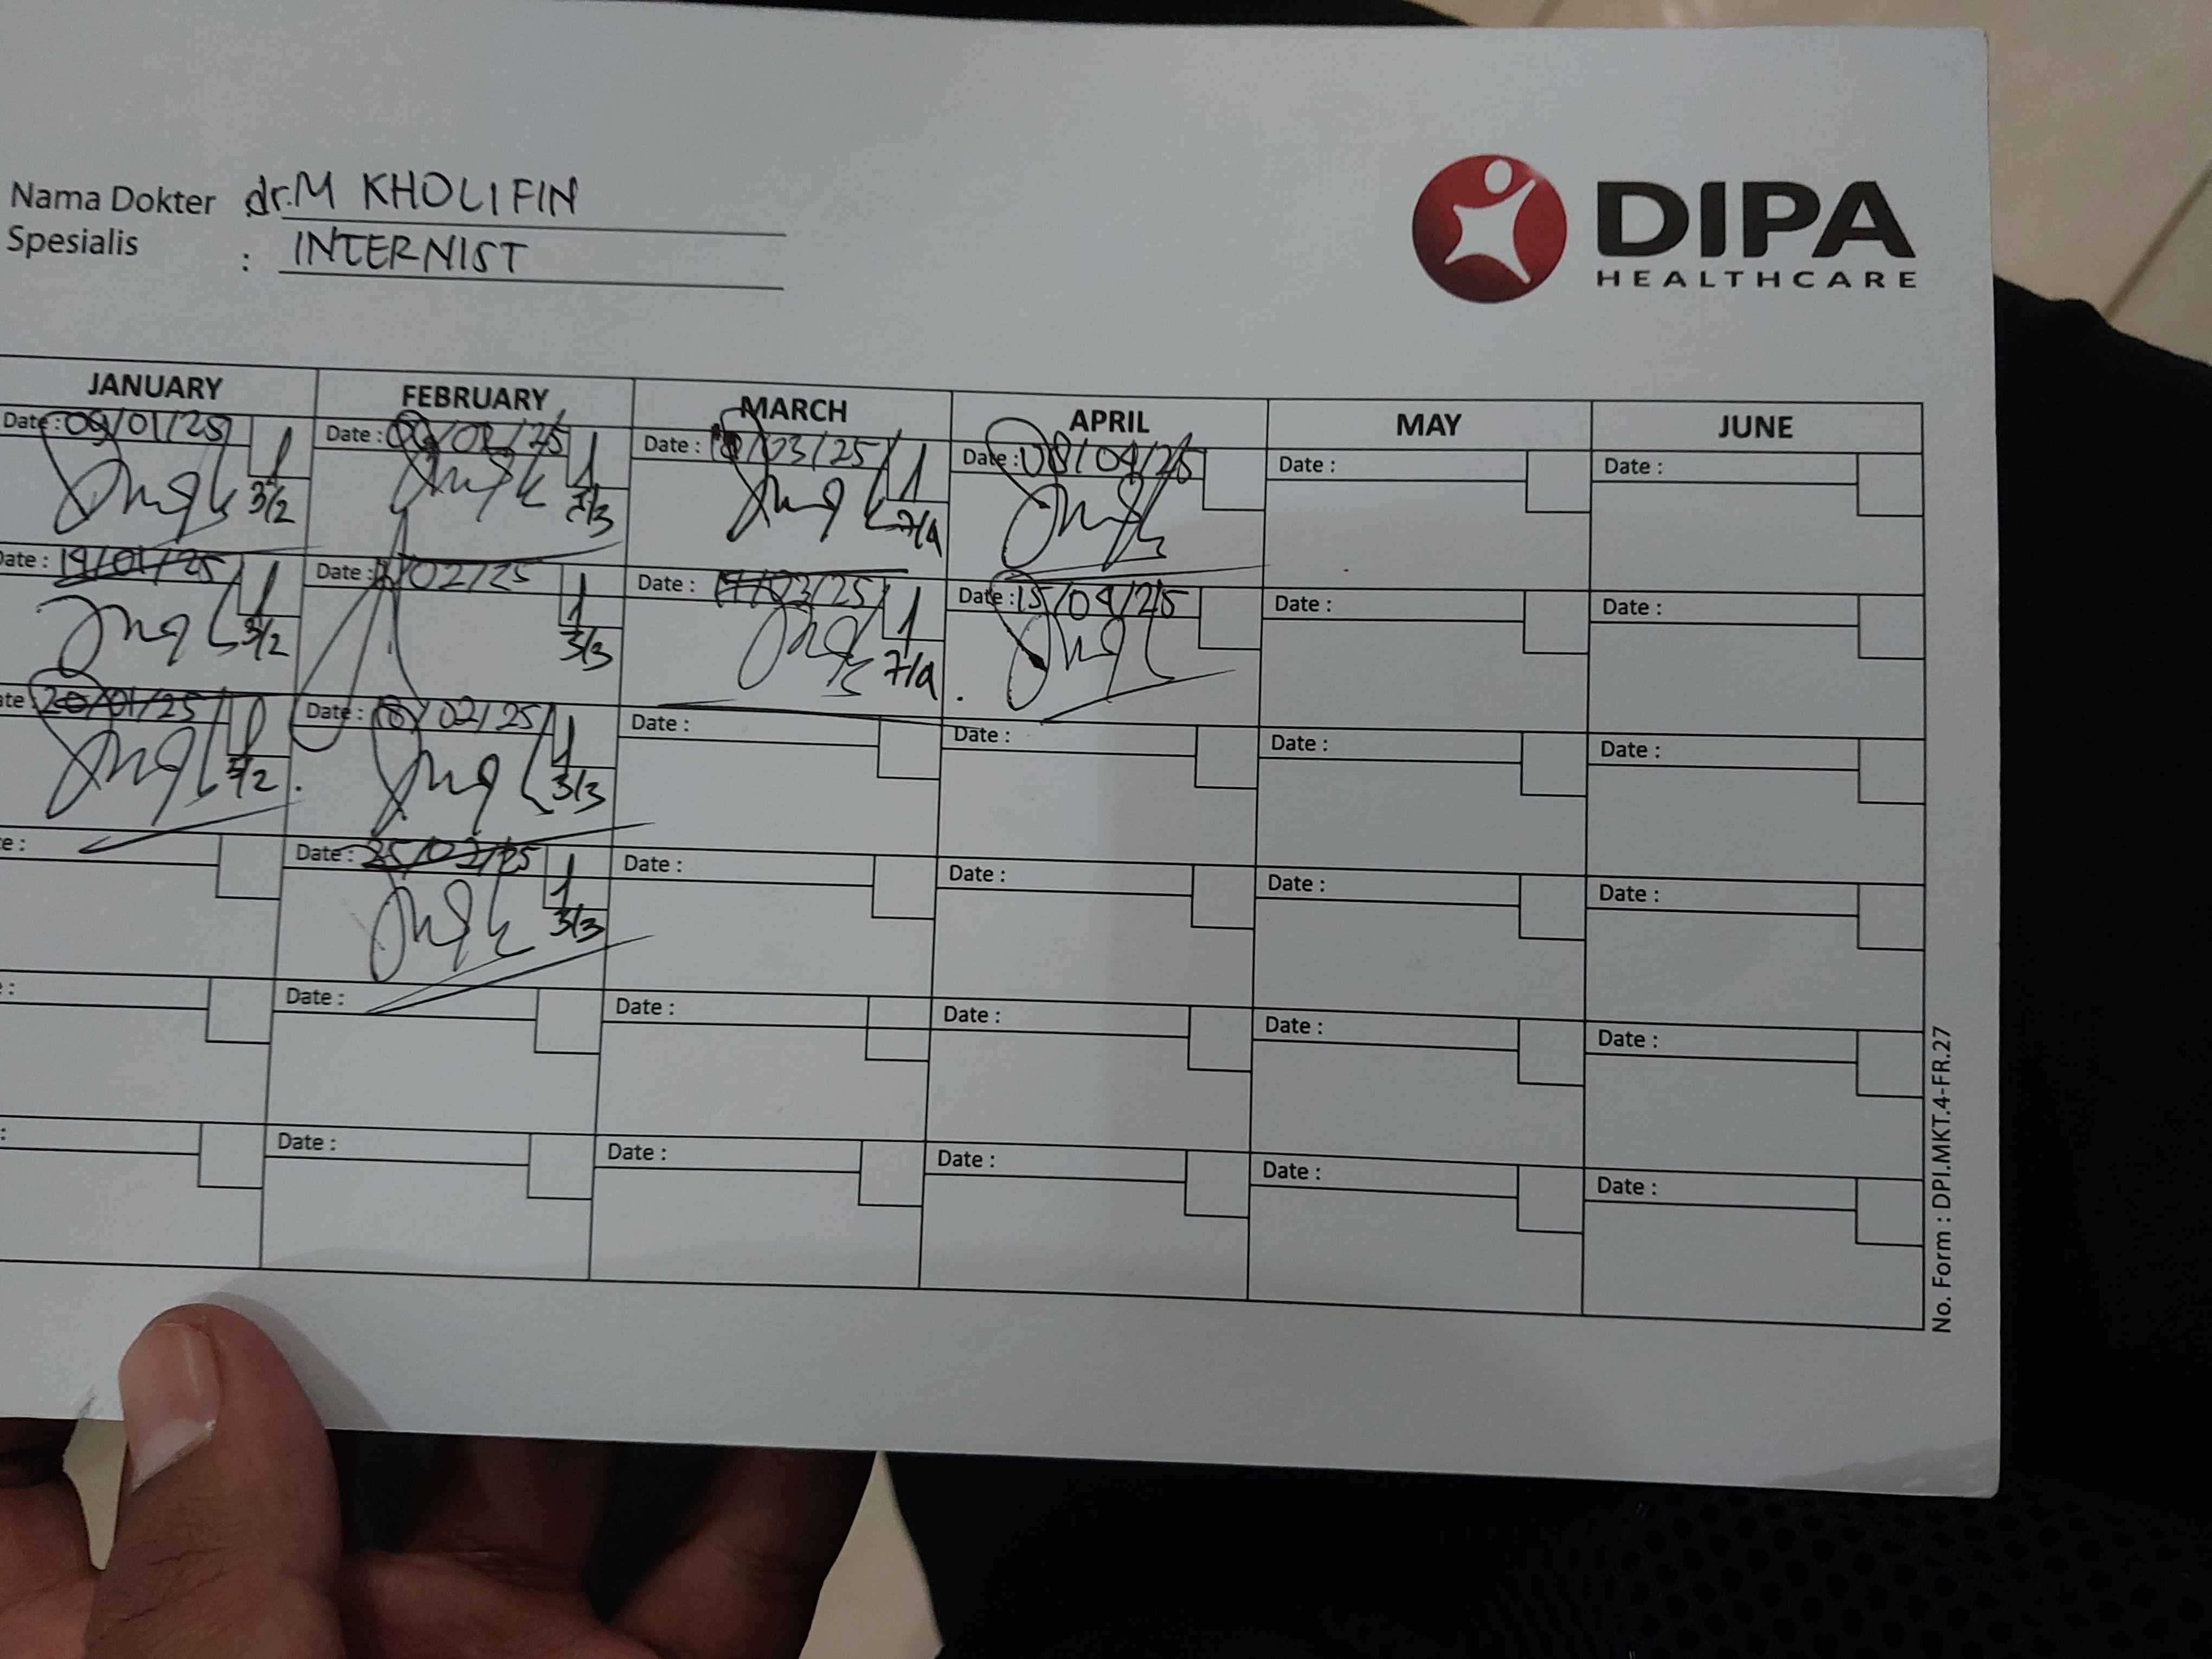 Nama Dokter dr. M KHOLIFIN
Spesialis : INTERNIST
DIPA
HEALTHCARE
JANUARY FEBRUARY MARCH APRIL MAY JUNE
Date : 09/01/25 Date : /02/25 Date : /03/25 Date : 08/04/25 Date : Date :
3/2 3/3 7/4
Date : 14/01/25 Date : /02/25 Date : /03/25 Date : 15/04/25 Date : Date :
3/2 3/3 7/4
Date 20/01/25 Date : 18/02/25 Date : Date : Date : Date :
3/2 3/3
e : Date : 25/02/25 Date : Date : Date : Date :
3/3
: Date : Date : Date : Date : Date :
: Date : Date : Date : Date : Date :
No. Form : DPI.MKT.4-FR.27